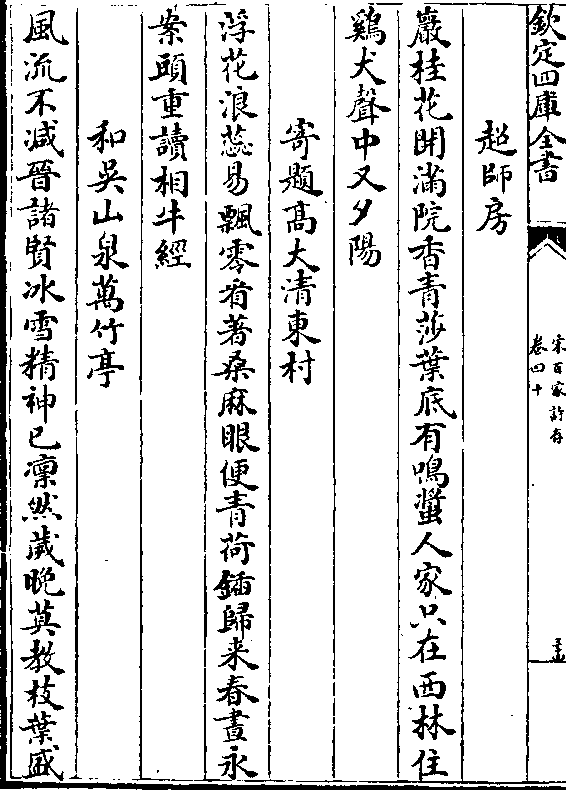 欽定四庫全書
宋百家詩存
卷四十
超師房
巖桂花開滿院香青莎葉底有鳴螿人家只在西林住
鷄犬聲中又夕陽
寄題髙大清東村
浮花浪蕊易飄零看著桑麻眼便青荷鍤歸来春晝永
案頭重讀相牛經
和吳山泉萬竹亭
風流不减晉諸賢冰雪精神已凛然歲晚莫教枝葉盛